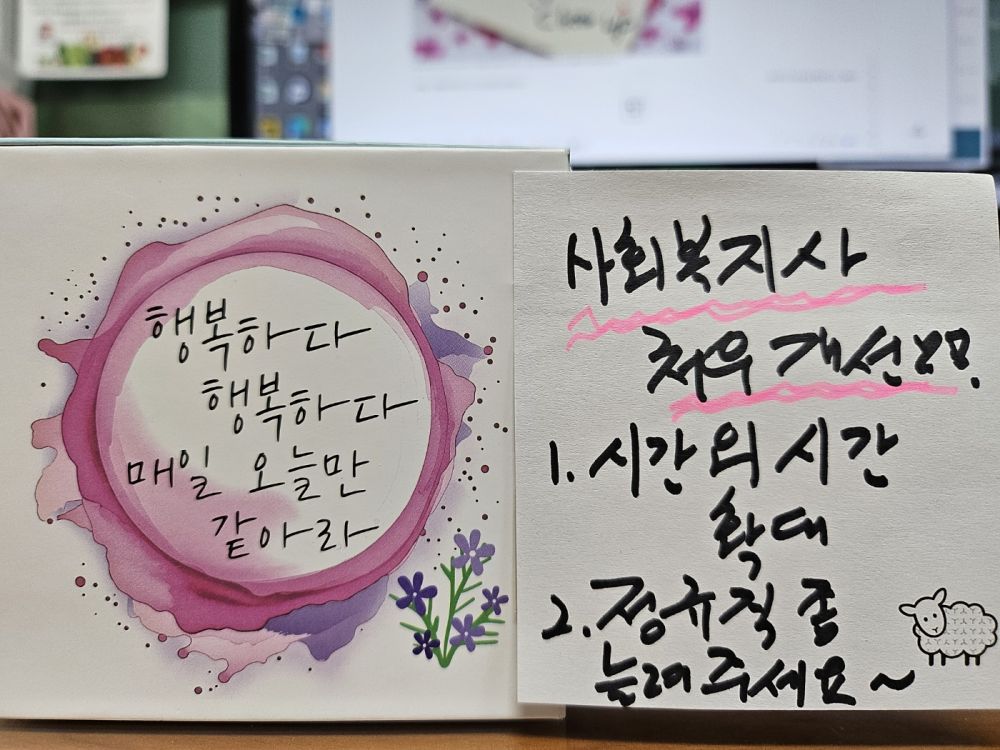 행복하다
행복하다
매일 오늘만
같아라
사회복지사
처우 개선요망.
1. 시간외 시간
확대
2. 정규직 좀
늘려주세요~